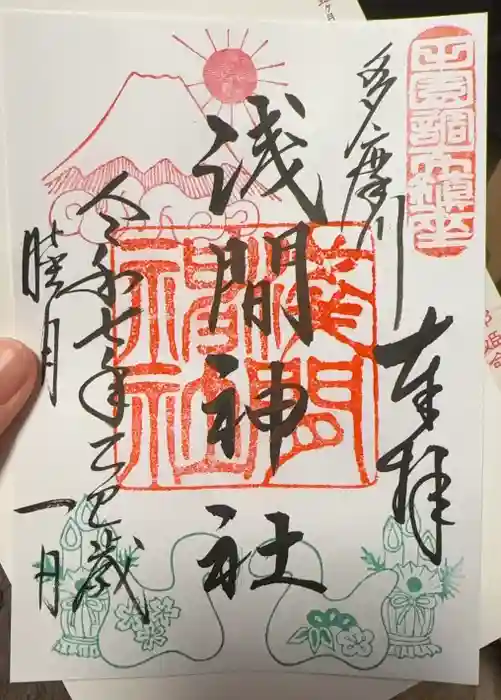 田園調布鎮座
多摩川
奉拝
浅間神社
令和七年乙巳歳
睦月
一月